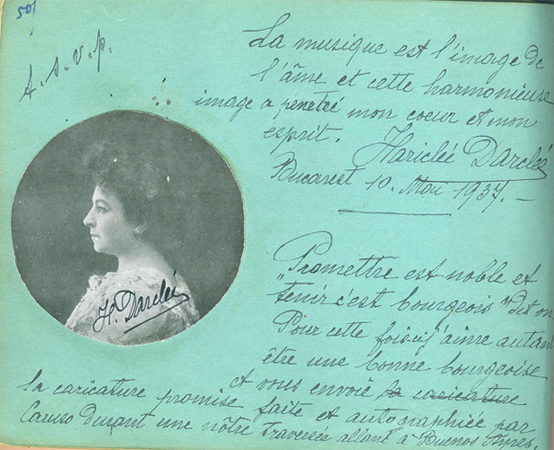 50
La musique est l'image de
l'âme et cette harmonieuse
image a penetré mon coeur et mon
esprit.
Hariclée Darclée
Bucarest 10. Mai 1937. —
H. Darclée
„Promettre est noble et
tenir c'est bourgeois" dit on
Pour cette fois-ci j'aime autant
être une bonne bourgeoise
et vous envoie la caricature
la caricature promise faite et autographiée par
Caruso durant une nôtre traversée allant à Buenos Ayres.